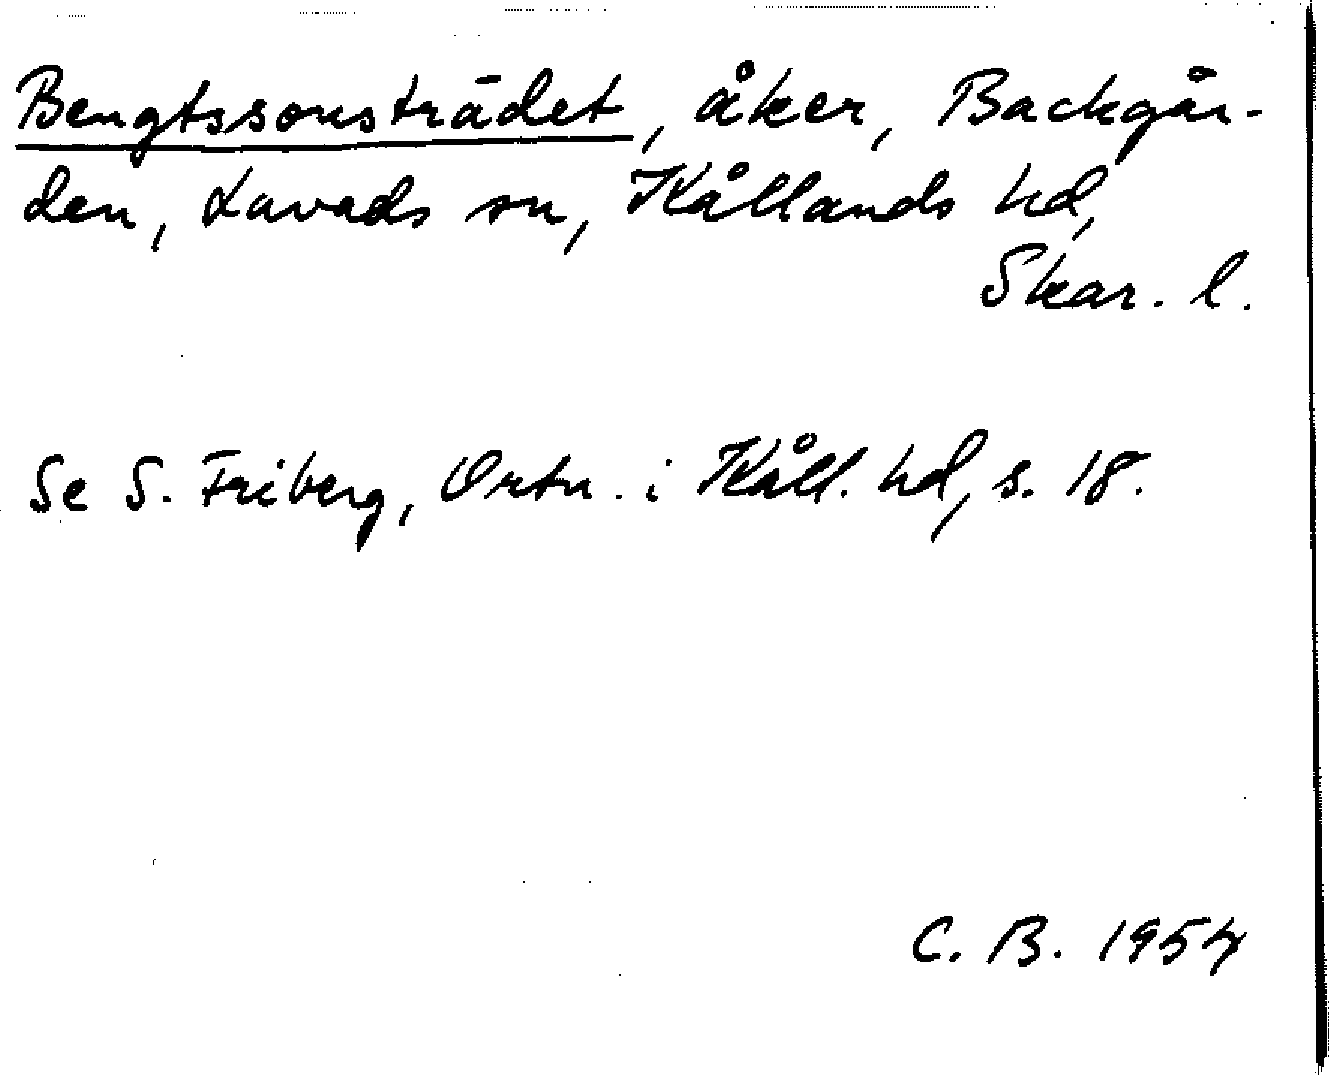 Bengtssonsträdet, åker, Backgår-
den, Lavads sn, Kållands hd,
Skar. l.
Se S. Friberg, Ortn. i Kåll. hd, s. 18.
C. B. 1954